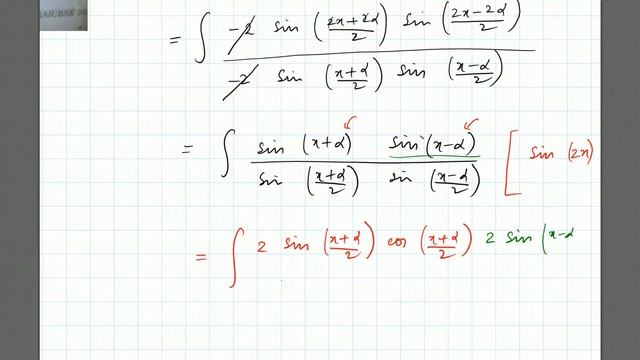 (AICBSE
= ∫ -2 sin (2x+2α/2) sin (2x-2α/2)
-2 sin (x+α/2) sin (x-α/2)
= ∫ sin (x+α) sin (x-α) [ sin (2x)
sin (x+α/2) sin (x-α/2)
= ∫ 2 sin (x+α/2) cos (x+α/2) 2 sin (x-α